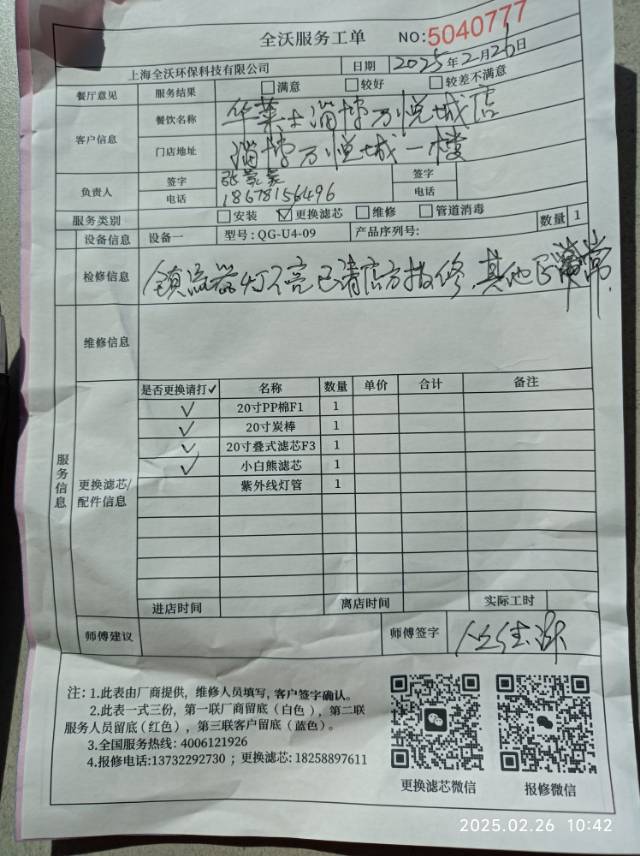 全沃服务工单 NO:5040777
上海全沃环保科技有限公司 日期 2025年2月26日
餐厅意见 服务结果 □满意 □较好 □较差不满意
客户信息 餐饮名称 华莱士淄博万悦城店
门店地址 淄博万悦城一楼
负责人 签字 签字
电话 18678156496 电话
服务类别 □安装 ☑更换滤芯 □维修 □管道消毒 数量 1
设备信息 设备一 型号:QG-U4-09 产品序列号:
检修信息 镇流器灯不亮已请官方报修,其他正常.
维修信息
服务信息
更换滤芯/配件信息
是否更换请打✓ 名称 数量 单价 合计 备注
✓ 20寸PP棉F1 1
✓ 20寸炭棒 1
✓ 20寸叠式滤芯F3 1
✓ 小白熊滤芯 1
紫外线灯管 1
进店时间 离店时间 实际工时
师傅建议 师傅签字
注: 1.此表由厂商提供, 维修人员填写, 客户签字确认。
2.此表一式三份, 第一联厂商留底(白色), 第二联
服务人员留底(红色), 第三联客户留底(蓝色)。
3.全国服务热线: 4006121926
4.报修电话:13732292730 ; 更换滤芯: 18258897611
更换滤芯微信 报修微信
2025.02.26 10:42